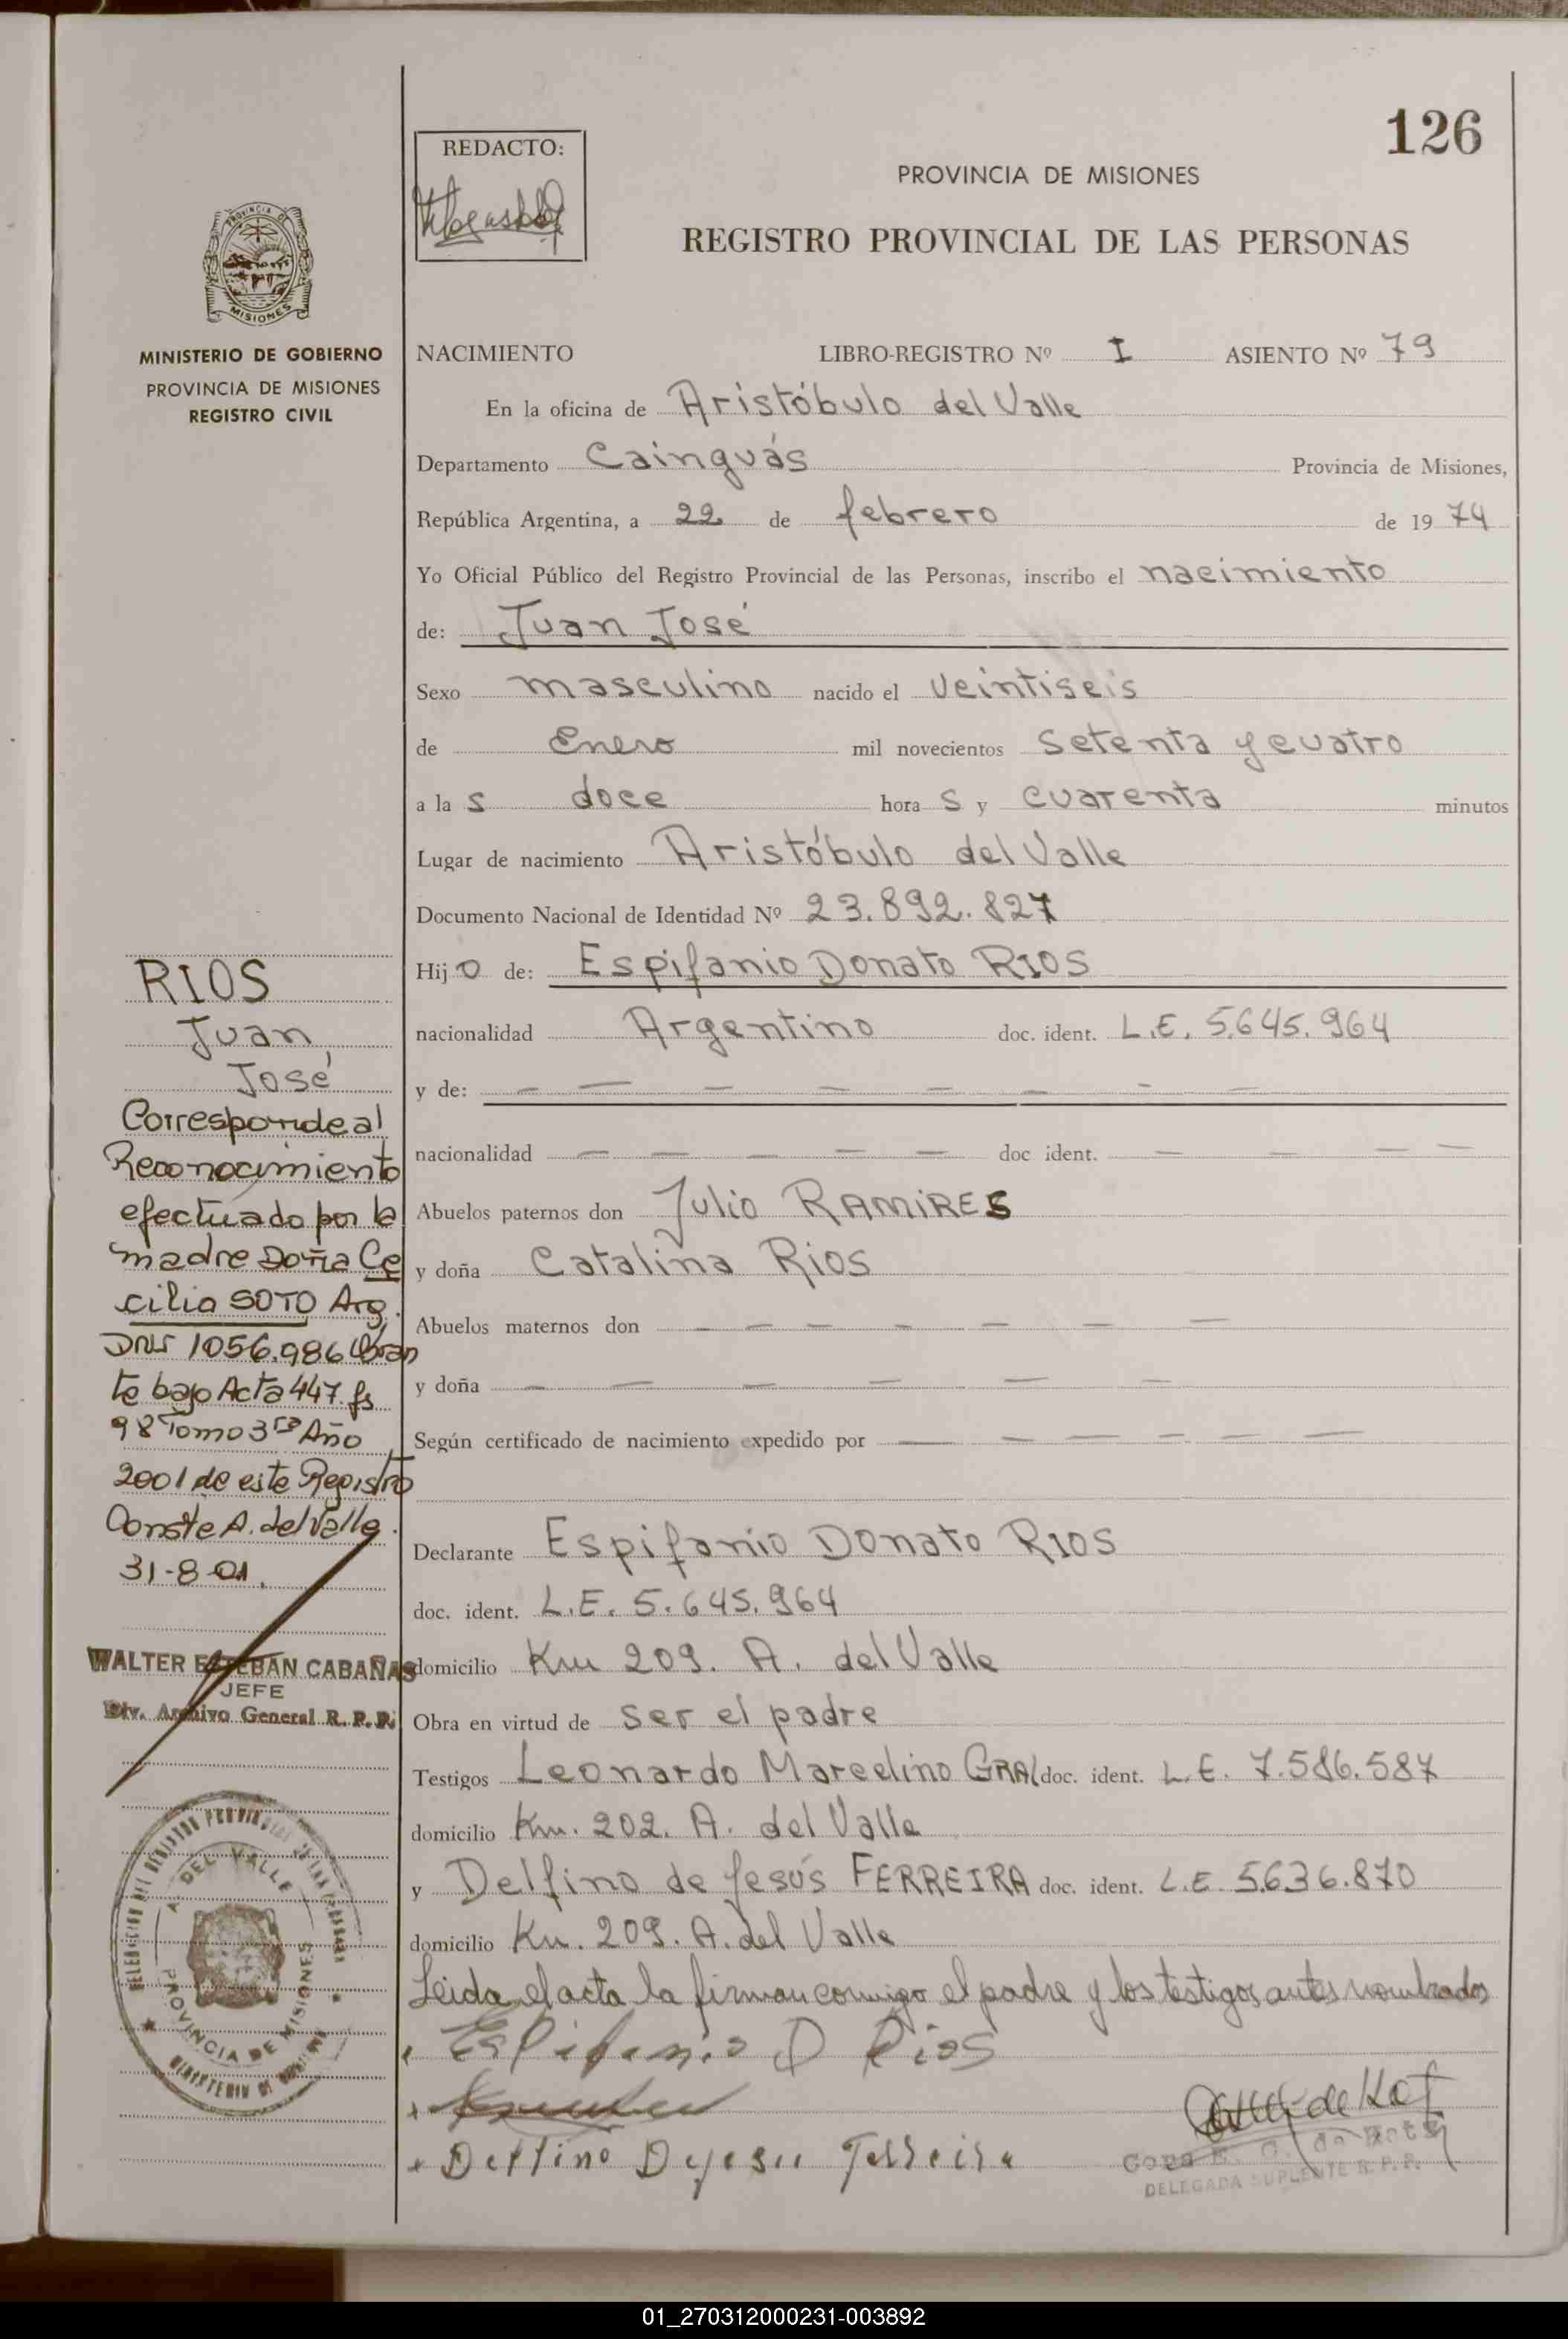 126
REDACTO:
PROVINCIA DE MISIONES
REGISTRO PROVINCIAL DE LAS PERSONAS
PROVINCIA DE
MISIONES
MINISTERIO DE GOBIERNO
PROVINCIA DE MISIONES
REGISTRO CIVIL
NACIMIENTO LIBRO-REGISTRO Nº I ASIENTO Nº 79
En la oficina de Aristóbulo del Valle
Departamento Cainguás Provincia de Misiones,
República Argentina, a 22 de febrero de 1974
Yo Oficial Público del Registro Provincial de las Personas, inscribo el nacimiento
de: Juan José
Sexo masculino nacido el veintiseis
de Enero mil novecientos setenta y cuatro
a las doce horas y cuarenta minutos
Lugar de nacimiento Aristóbulo del Valle
Documento Nacional de Identidad Nº 23.892.827
Hijo de: Espifanio Donato RIOS
nacionalidad Argentino doc. ident. L.E. 5.645.964
y de: — — — — — — — —
nacionalidad — — — — — doc ident. — — — —
Abuelos paternos don Julio RAMIRES
y doña Catalina Rios
Abuelos maternos don — — — — — — —
y doña — — — — — —
Según certificado de nacimiento expedido por — — — — — —
Declarante Espifanio Donato RIOS
doc. ident. L.E. 5.645.964
domicilio Km 209. A. del Valle
Obra en virtud de ser el padre
Testigos Leonardo Marcelino GRAL doc. ident. L.E. 7.586.587
domicilio Km. 202. A. del Valle
y Delfino de Jesús FERREIRA doc. ident. L.E. 5.636.870
domicilio Km. 209. A. del Valle
Leida el acta la firman conmigo el padre y los testigos antes nombrados
Espifanio D Rios
Delfino Dejesu Ferreira
DELEGADA SUPLENTE R. P. P.
RIOS
Juan
José
Corresponde al
Reconocimiento
efectuado por la
madre Doña Ce
cilia SOTO Arg.
DNI 1056.986 Obran
te bajo Acta 447. fs
98 Tomo 3ro Año
2001 de este Registro
Conste A. del Valle.
31-8-01.
WALTER ESTEBAN CABAÑAS
JEFE
Div. Archivo General R. P. P.
A. DEL VALLE
PROVINCIA DE MISIONES
01_270312000231-003892